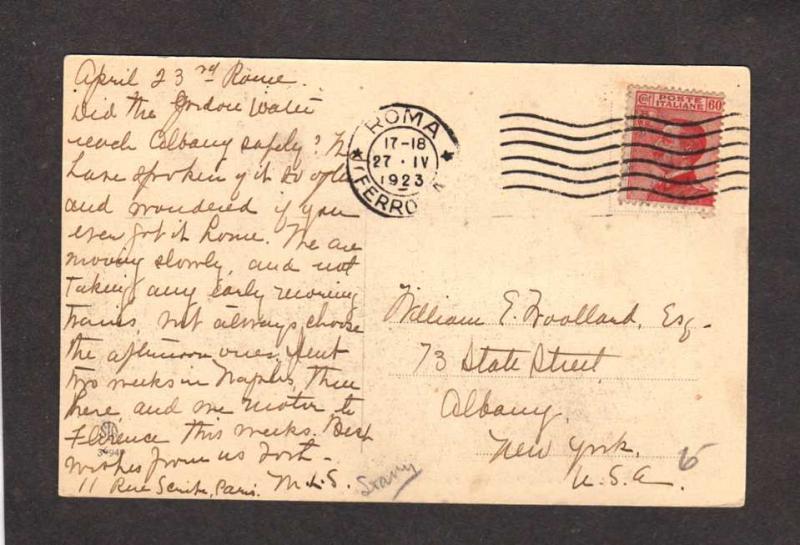 April 23rd Rome.
Did the Jordon Water
reach Albany safely? We
have spoken of it so often
and wondered if you
ever got it home. We are
moving slowly, and not
taking any early morning
trains, but always choose
the afternoon ones. Spent
two weeks in Naples, then
here and we motor to
Florence this week. Best
wishes from us both.
11 Rue Scribe, Paris. M.L.S.
ROMA
17-18
27 · IV
1923
FERROVIA
Cent POSTE ITALIANE 60
William E. Woolland, Esq.
73 State Street
Albany,
New York.
U.S.A.